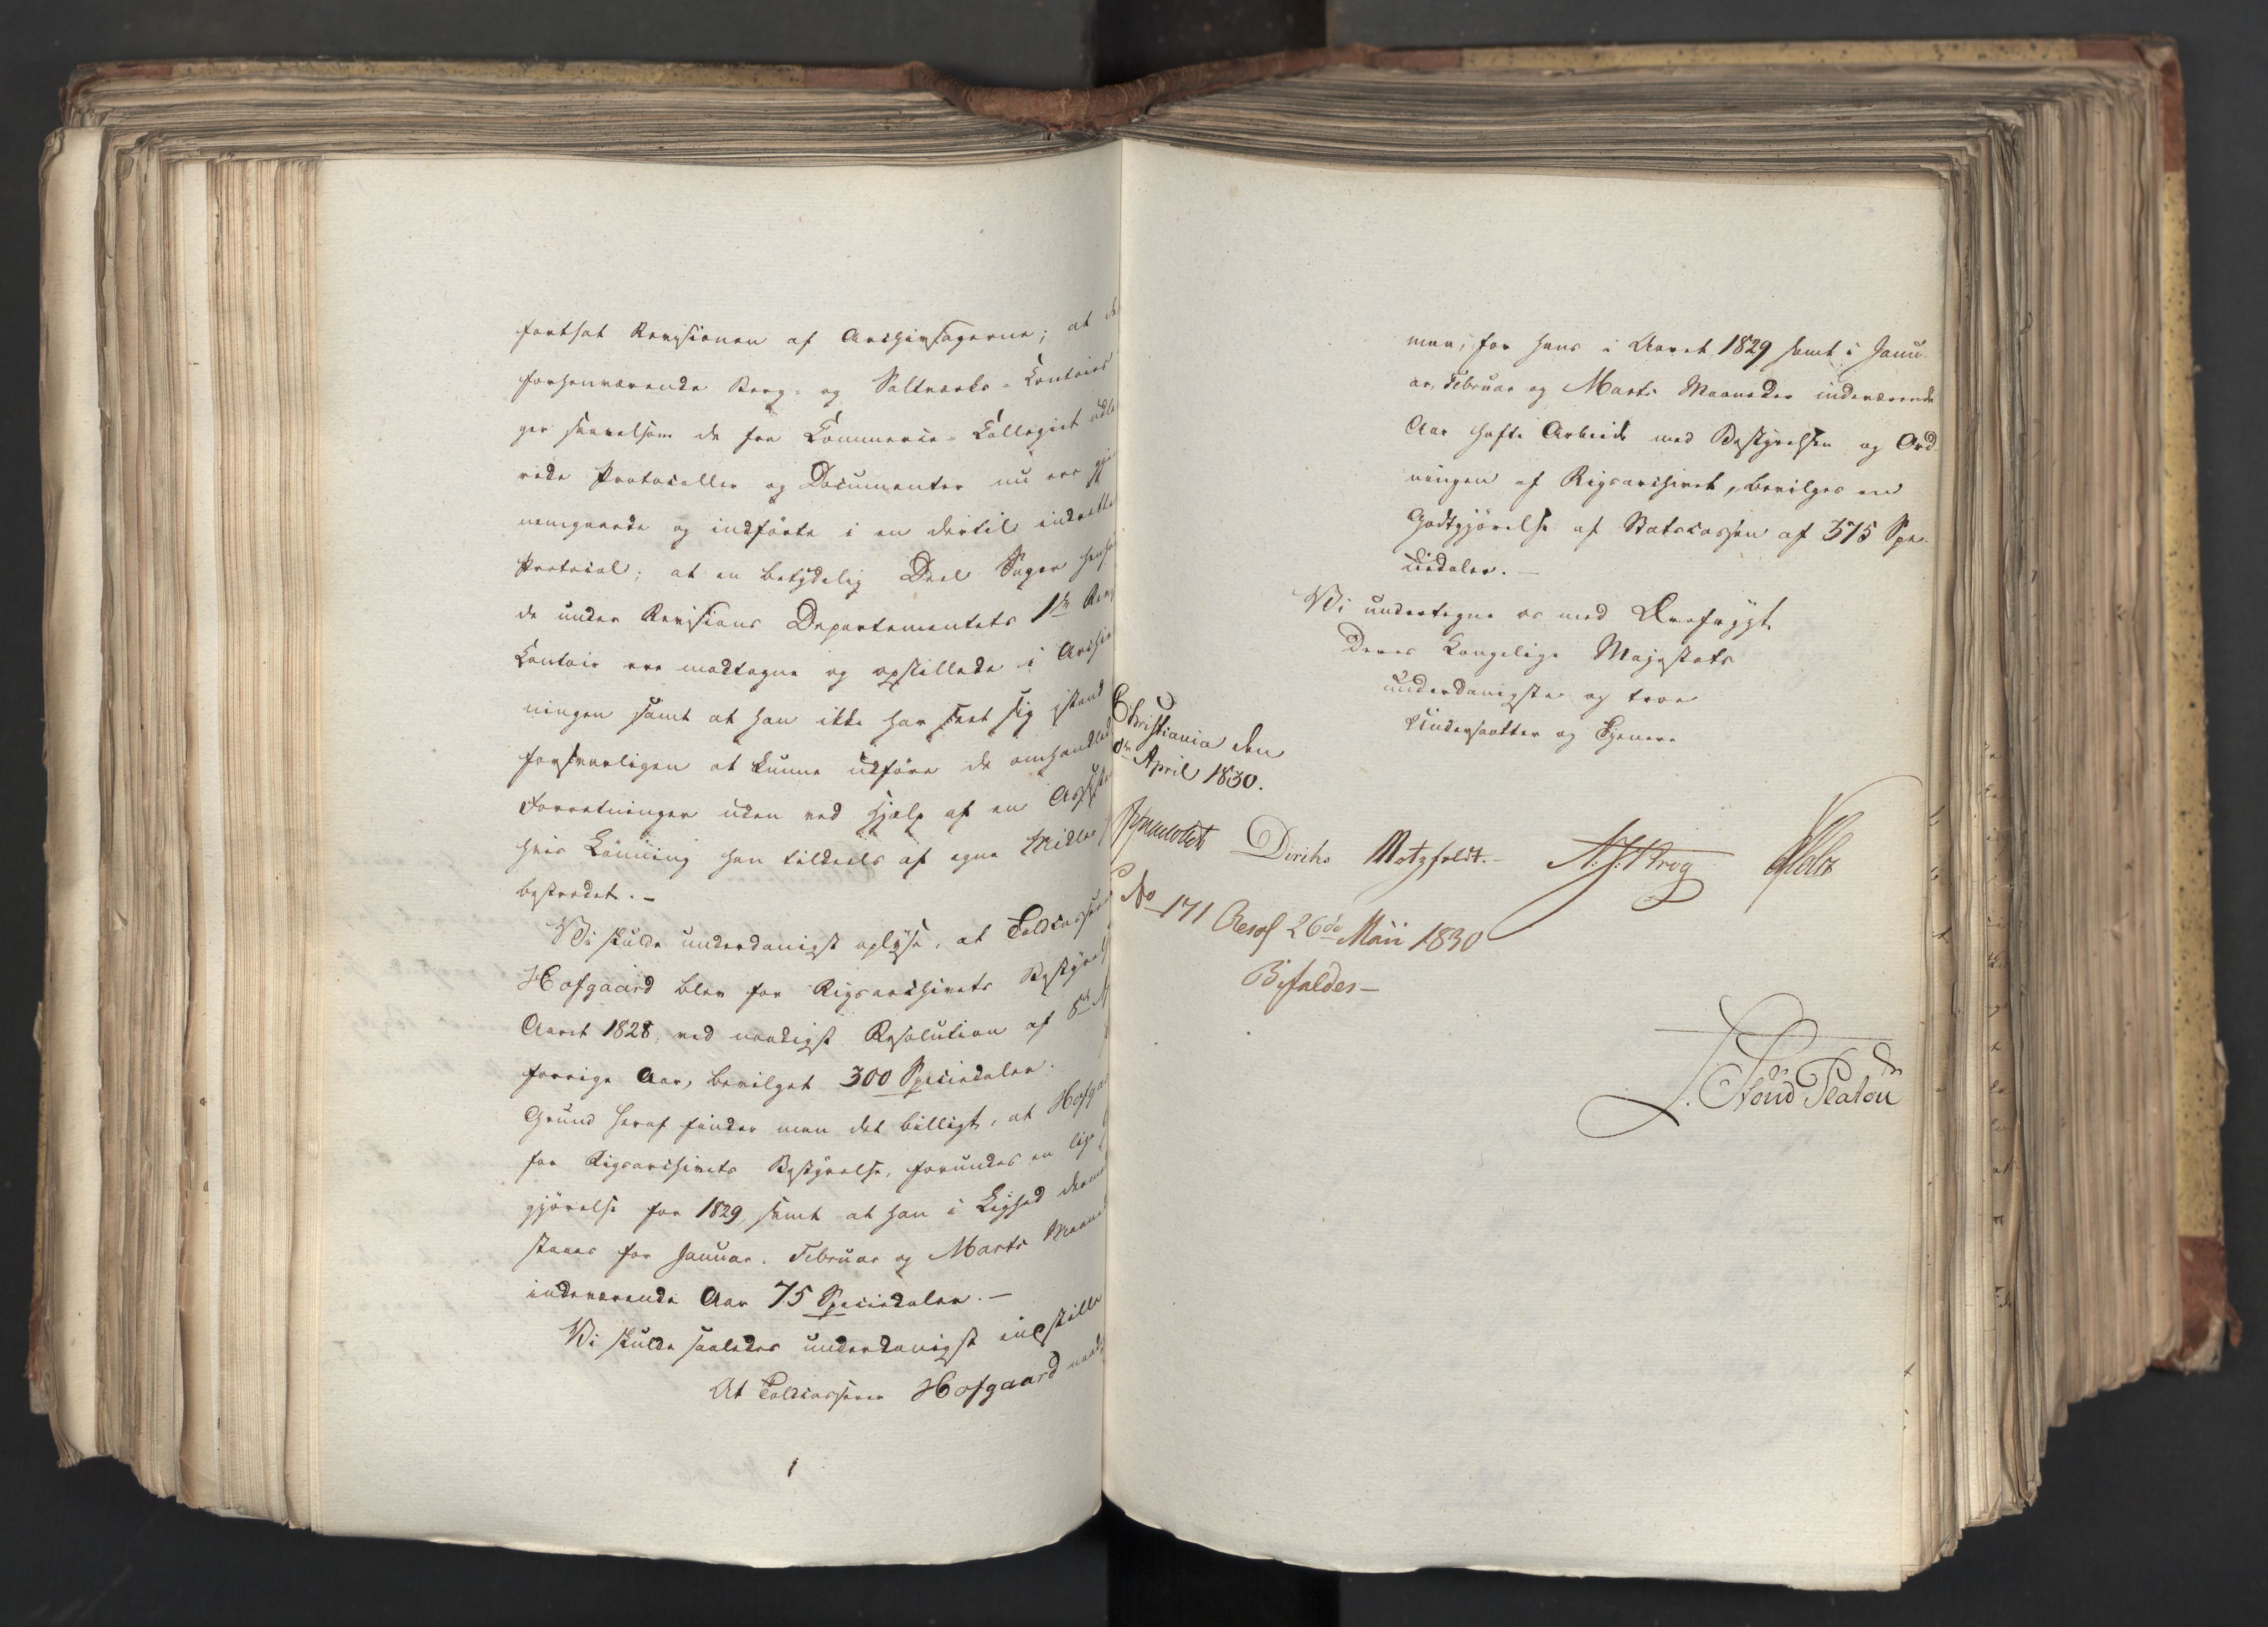 fortsat Revisionen af Archivsagerne; at de
forhenværende Berg- og Saltværks-Contoirs
ger saavelsom de fra Commerce-Collegiet udle
rede Protocoller og Documenter nu ere gjen
nemgaaede og indførte i en dertil indrettet
Protocol; at en betydelig Deel Sager henhø
de under Revisions Departementets 1ste Rev
Contoir ere modtagne og opstillede i Archiv
ningen samt at han ikke har seet sig istand
forsvarligen at kunne udføre de omhandlede
Forretninger uden ved Hjælp af en Assiste
hvis Lønning han tildeels af egne Midler
bestredet.-
Vi skulde underdanigst oplyse, at Toldcasserer
Hofgaard blev for Rigsarchivets Bestyrelse
Aaret 1828, ved naadigst Resolution af 8de
forrige Aar, bevilget 300 Speciedaler.
Grund heraf finder man det billigt, at Hofga
for Rigsarchivets Bestyrelse, forundes en lige
gjørelse for 1829, samt at han i Lighed derm
staaes for Januar, Februar og Marts Maane
indeværende Aar 75 Speciedaler.-
Vi skulde saaledes underdanigst indstille
At Toldcasserer Hofgaard naad
1
men, for hans i Aaret 1829 samt i Janu-
ar, Februar og Marts Maaneder indeværende
Aar hafte Arbeide med Bestyrelsen og Ord-
ningen af Rigsarchivet, bevilges en
Godtgjørelse af Statscassen af 375 Spe-
ciedaler.-
Vi undertegne os med Ærefrygt
Deres Kongelige Majestæts
underdanigste og troe
Undersaatter og Tjenere
Christiania den
April 1830.
Diriks Motzfeldt.- N. J. Krog Holst
No 171 Resol 26de Mai 1830
Bifaldes-
F. Stoud Platou